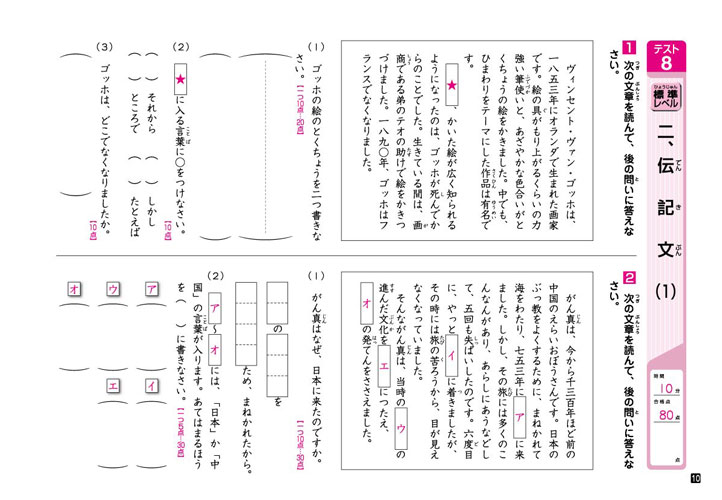 テスト
8
ひょうじゅん
標準
レベル
二、伝記文(1)
でん き ぶん
時間
10分
合格点
80点
点
1 次の文章を読んで、後の問いに答えな
さい。
ヴィンセント・ヴァン・ゴッホは、
一八五三年にオランダで生まれた画家
です。絵の具がもり上がるくらいの力
強い筆使いと、あざやかな色合いがと
くちょうの絵をかきました。中でも、
ひまわりをテーマにした作品は有名で
す。
★、かいた絵が広く知られる
ようになったのは、ゴッホが死んでか
らのことでした。生きている間は、画
商である弟のテオの助けで絵をかきつ
づけました。一八九〇年、ゴッホはフ
ランスでなくなりました。
(1) ゴッホの絵のとくちょうを二つ書きな
さい。【一つ10点…20点】
(2) ★に入る言葉に○をつけなさい。
【10点】
( )それから ( )しかし
( )ところで ( )たとえば
(3) ゴッホは、どこでなくなりましたか。
【10点】
2 次の文章を読んで、後の問いに答えな
さい。
がん真は、今から千三百年ほど前の
中国のえらいおぼうさんです。日本の
ぶっ教をよくするために、まねかれて
海をわたり、七五三年にアに来
ました。しかし、その旅には多くのこ
んなんがあり、あらしにあうなどし
て、五回も失ぱいしたのです。六度目
に、やっとイに着きましたが、
その時には旅の苦ろうから、目が見え
なくなっていました。
そんながん真は、当時のウの
進んだ文化をエにつたえ、
オの発てんをささえました。
(1) がん真はなぜ、日本に来たのですか。
【一つ10点…30点】
の を
ため、まねかれたから。
(2) ア〜オには、「日本」か「中
国」の言葉が入ります。あてはまるほう
を( )に書きなさい。【一つ6点…30点】
ア
イ
ウ
エ
オ
10